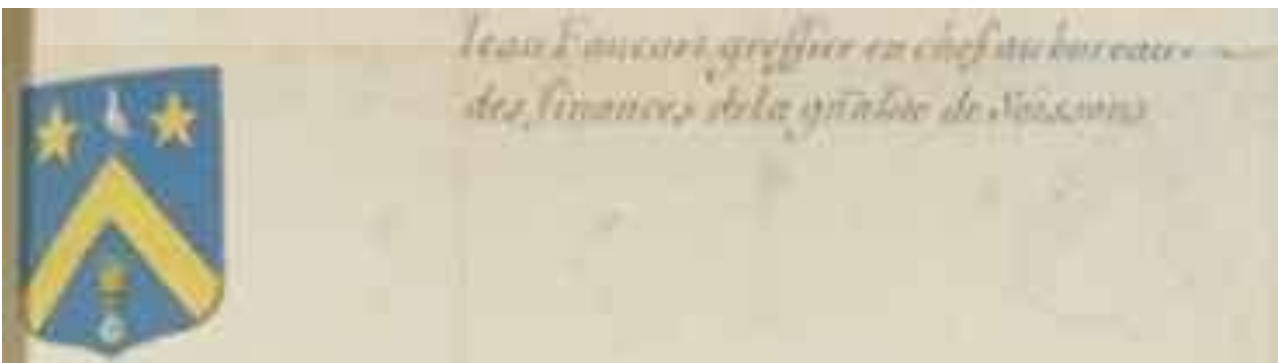 Jean Faucart, greffier en chef au bureau
des finances de la gñalité de Soissons